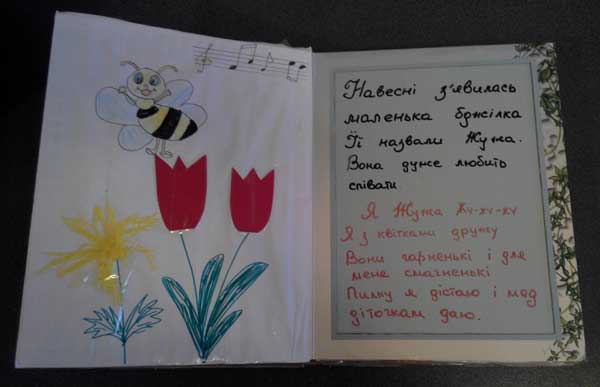 Навесні з'явилась
маленька бджілка
Її назвали Жужа.
Вона дуже любить
співати
Я Жужа Жу-жу-жу
Я з квітками дружу
Вони гарненькі і для
мене смачненькі
Пилку я дістаю і мед
діточкам даю.